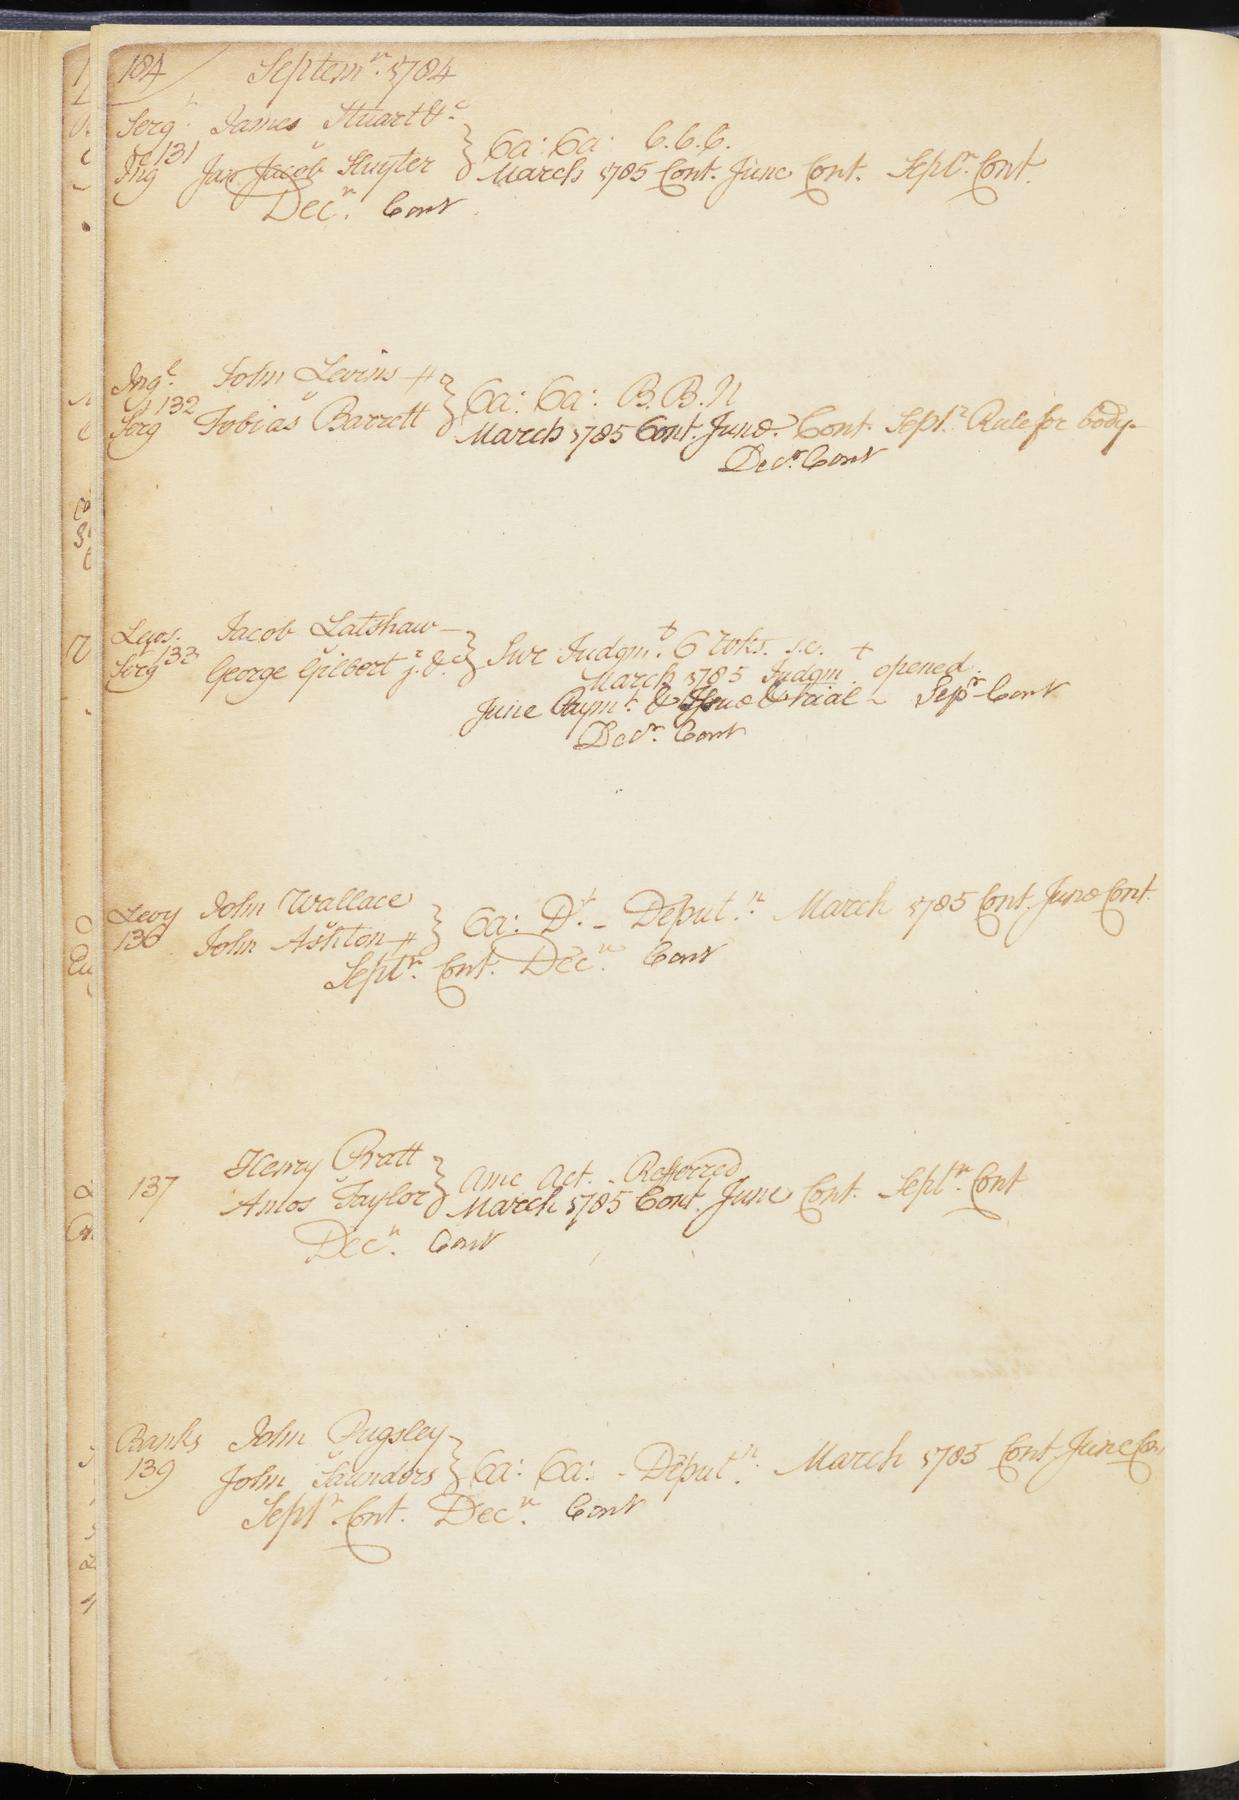 184 Septemr. 1784
Sergt James Stuart &c
131 v
Ing Jax. Jacob Sluyter } Ca: Sa: C.C.C.
March 1785 Cont. June Cont. Septr. Cont.
Decr. Cont
Ingl. John Levins
132 v
Serg Tobias Barrott } Ca: Sa: B.B.N
March 1785 Cont. June. Cont. Septr. Rule for body.
Decr. Cont
Jacob Latshaw
133
Serg George Gilbert j. &c } Sur Judgmt. 6 Wks. s.c. +
March 1785 Judgm. opened.
June Paymt. & Issue & trial - Sepr Cont
Decr. Cont
Levy John Wallace
136 v
John Ashton } Ca: Dt. - Deputn. March 1785 Cont. June Cont.
Septr. Cont. Decr. Cont
Henry Pratt
137 v
Amos Taylor } Ame Act. - Referred
March 1785 Cont. June Cont. Septr. Cont
Decr. Cont
Banks John Pugsley
139 v
John Saunders } Ca: Sa: - Deputn. March 1785 Cont. June Con
Septr. Cont. Decr. Cont